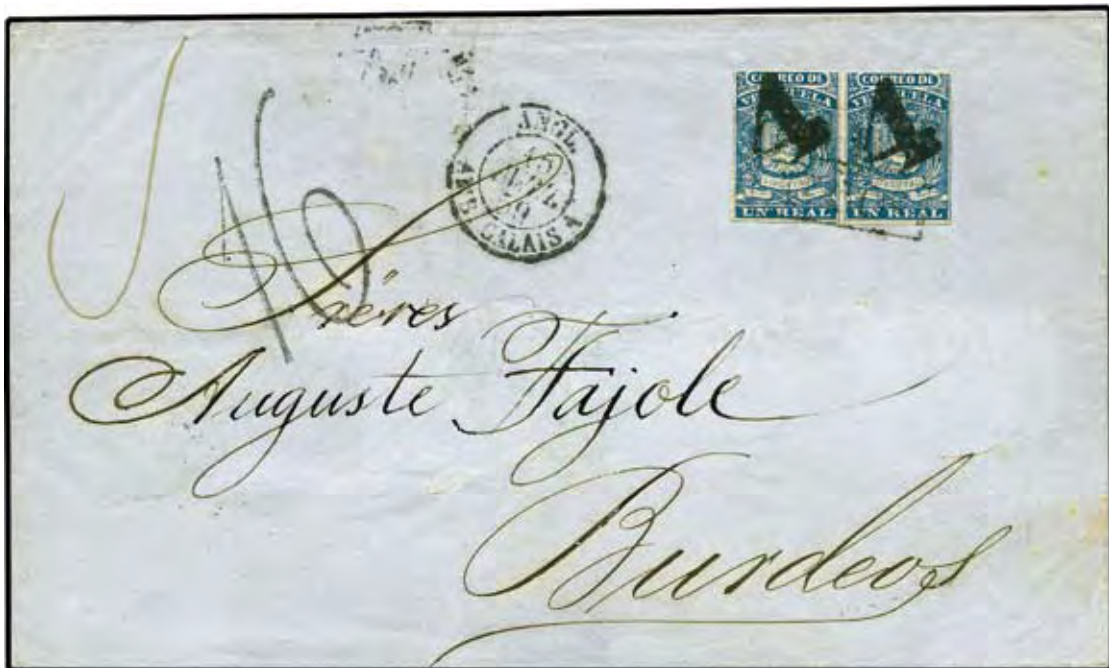 CORREO DE VENEZUELA UN REAL
CORREO DE VENEZUELA UN REAL
ANGL.
AMB. CALAIS A
16
Fréres
Auguste Fajole
Burdeos